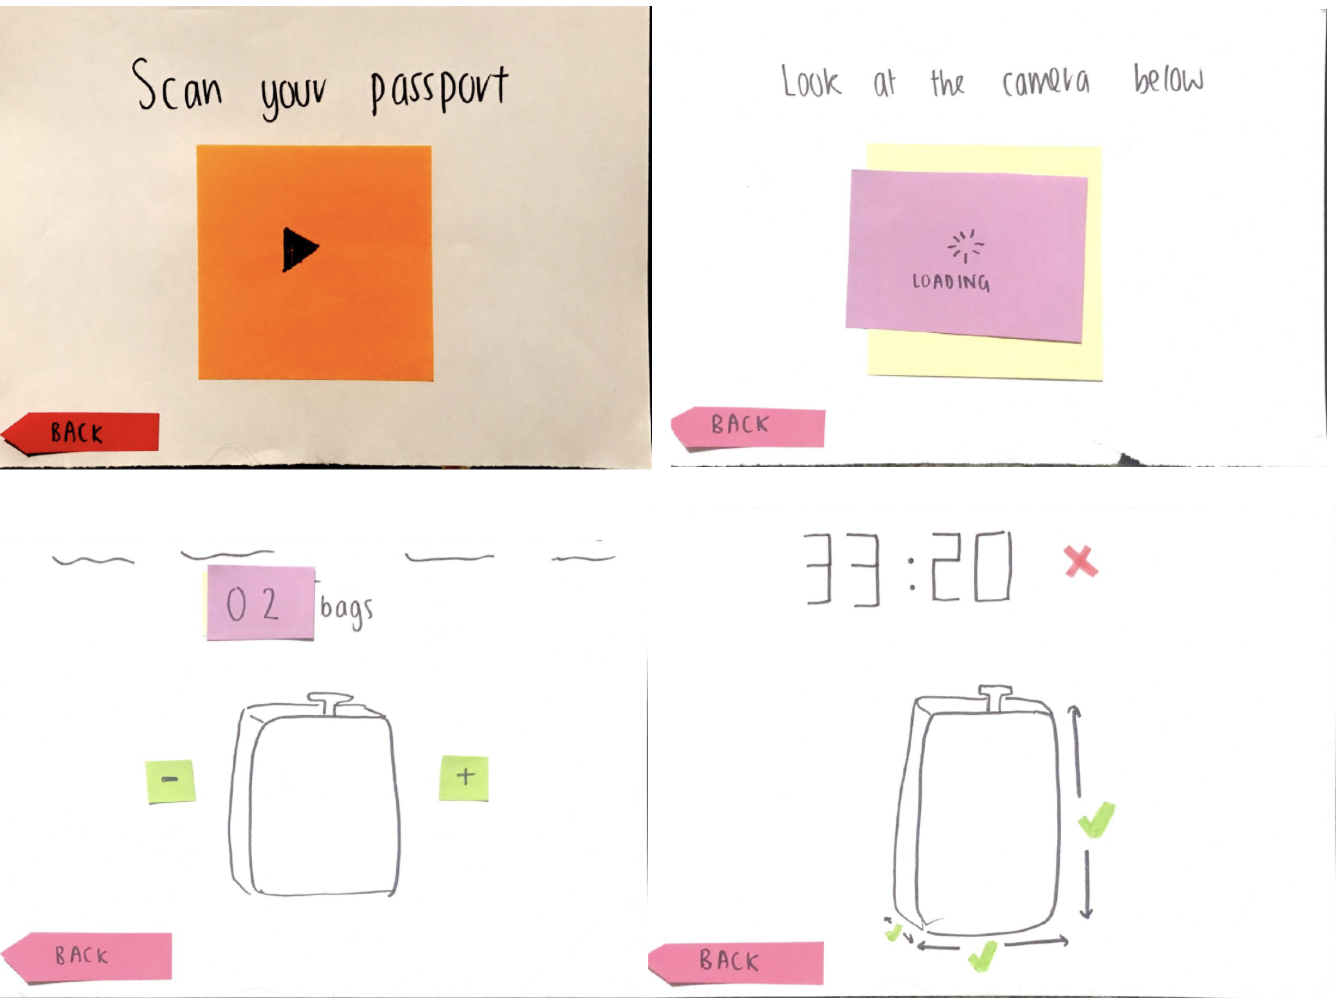 Scan your passport
BACK
Look at the camera below
LOADING
BACK
02 bags
-
+
BACK
33:20
BACK